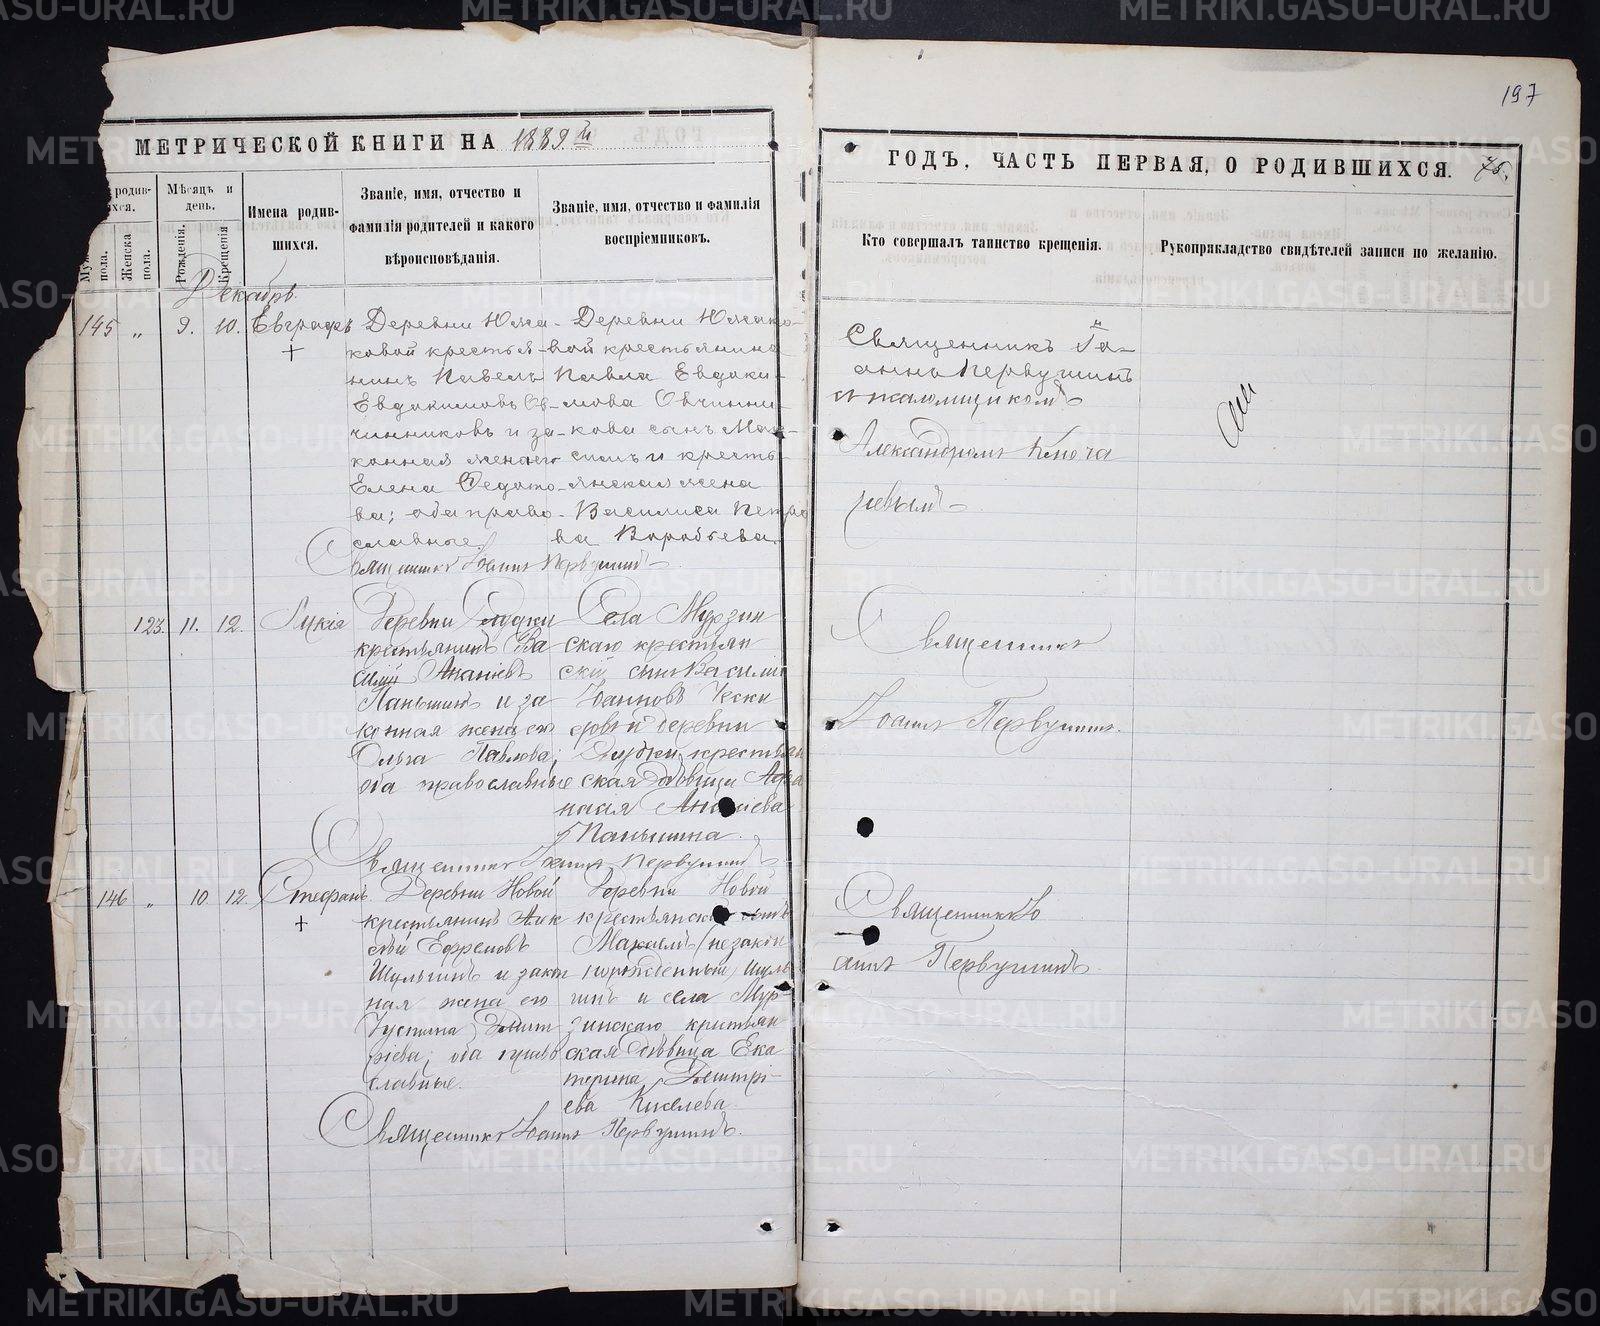 197
МЕТРИЧЕСКОЙ КНИГИ НА 1889й
ГОДЪ, ЧАСТЬ ПЕРВАЯ, О РОДИВШИХСЯ.
родив-
хся.
Муж
пола.
Женска
пола.
Мѣсяцъ и
день.
Рожденія.
Крещенія
Имена родив-
шихся.
Званіе, имя, отчество и
фамилія родителей и какого
вѣроисповѣданія.
Званіе, имя, отчество и фамилія
воспріемниковъ.
Кто совершалъ таинство крещенія.
Рукоприкладство свидѣтелей записи по желанію.
Декабрь.
145 „ 9. 10. Евграфъ
Деревни Южа-
ковой крестья-
нинъ Павелъ
Евдокимовъ Ов-
чинниковъ и за-
конная жена его
Елена Федото-
ва; оба право-
славные.
Деревни Южако-
вой крестьянина
Павла Евдоки-
мова Овчинни-
кова сынъ Мак-
симъ и кресть-
янская жена
Василиса Петро
ва Воробьева.
Священникъ Іоаннъ Первушинъ
Священникъ Іо-
аннъ Первушинъ
съ псаломщикомъ
Александромъ Ключа
ревымъ
123. 11. 12. Лукія
Деревни
крестьянинъ Ва
силій Ананіевъ
Паньшинъ и за
конная жена его
Ольга Павлова;
оба православные
Села Мурзин
скаго крестьян
скій сынъ Василій
Іоанновъ
деревни
крестьян
ская дѣвица
Ананіева
Паньшина.
Священникъ Іоаннъ Первушинъ
Священникъ
Іоаннъ Первушинъ.
146 „ 10 12. Стефанъ
Деревни Новой
крестьянинъ Алек
сѣй Ефремовъ
Шульгинъ и закон
ная жена его
Іустина Дмит
ріева; оба право
славные.
Деревни Новой
крестьянскій сынъ
Максимъ (незакон
норожденный) Шуль
гинъ и села Мур-
зинскаго крестьян
ская дѣвица Ека
терина Дмитрі-
ева Киселева.
Священникъ Іоаннъ Первушинъ.
Священникъ Іо
аннъ Первушинъ.
METRIKI.GASO-URAL.RU